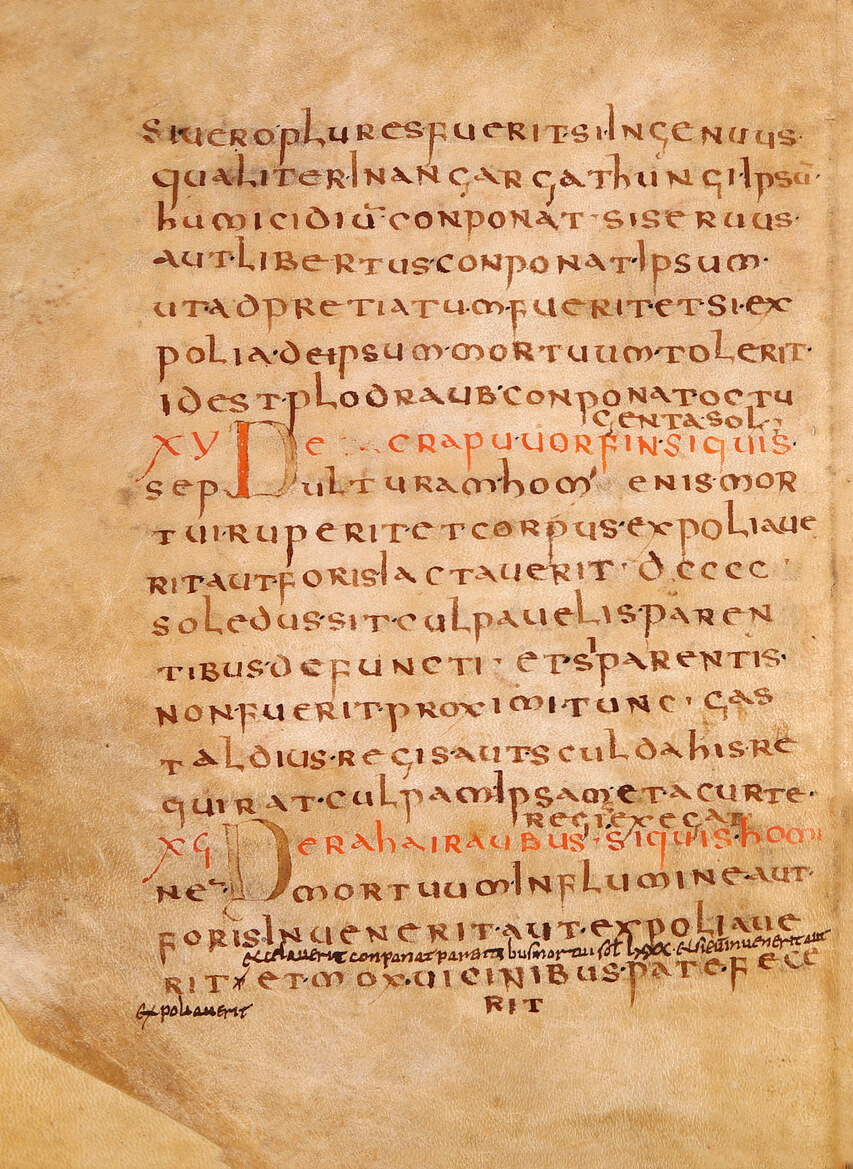 SIUEROPLURESFUERIT·SI·INGENUUS·
QUALITER·INANGARGATHUNGI·IPSŪ·
HUMICIDIŪ·CONPONAT·SISERUUS·
AUT·LIBERTUS·CONPONAT·IPSUM·
UT·ADPRETIATUM·FUERIT·ET·SI·EX
POLIA·DEIPSUM·MORTUUM·TOLERIT·
IDEST·PLODRAUB·CONPONAT·OCTU
GENTASOL·
XV DE CRAPUUORFIN·SIQUIS·
SEPULTURAM HOMENIS·MOR
TUI·RUPERIT·ET CORPUS·EXPOLIAUE
RIT·AUT·FORIS·IACTAUERIT· DCCCC
SOLEDUS·SIT·CULPAUELIS·PAREN
TIBUS·DEFUNCTI· ET·SI PARENTIS·
NON·FUERIT·PROXIMI·TUNC· GAS
TALDIUS·REGIS·AUT·SCULDAHIS·RE
QUIRAT·CULPAM IPSAM ET·ACURTE·
REGI·EXEGAT
XG DE RAHAIRAUBUS·SIQUIS·HOM
NE MORTUUM·IN FLUMINE·AUT·
FORIS·INUENERIT·AUT·EXPOLIAUE
et celauerit conponat parentibus mortui sol lxxx· et si eum inuenerit aut
RIT ET·MOX·UICINIBUS·PATEFECE
expoliauerit
RIT